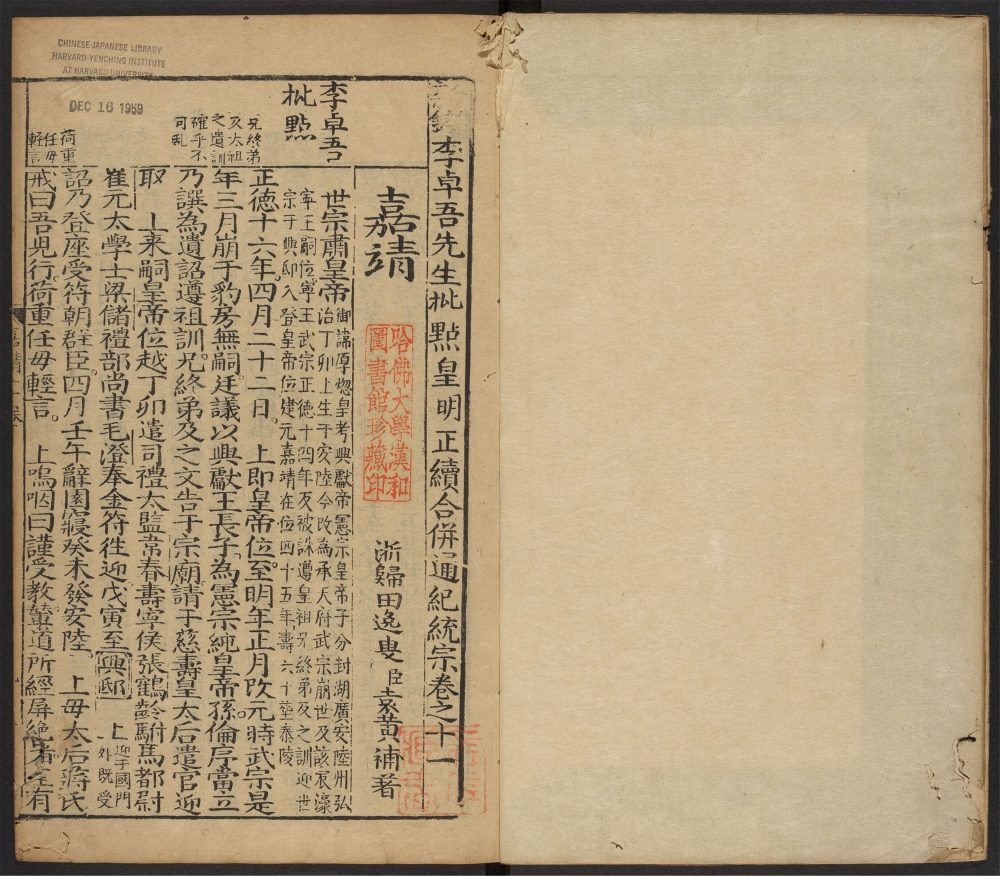 CHINESE-JAPANESE LIBRARY
HARVARD-YENCHING INSTITUTE
AT HARVARD UNIVERSITY
DEC 16 1959
李卓吾先生批點皇明正續合併通紀統宗卷之十一
李卓吾
批點
嘉靖
哈佛大學漢和
圖書館珍藏印
浙歸田逸叟臣袁黃補著
世宗肅皇帝
御諱厚熜皇考興獻帝憲宗皇帝子分封湖廣安陸州弘
治丁卯上生于安陸今改為承天府武宗崩世及該哀濠
寧王嗣位寧王武宗正德十四年反被誅遵皇祖兄終弟及之訓迎世
宗于興邸入登皇帝位建元嘉靖在位四十五年壽六十葬泰陵
兄終弟
及太祖
之遺訓
確乎不
可亂
正德十六年四月二十二日 上即皇帝位至明年正月改元時武宗是
年三月崩于豹房無嗣廷議以興獻王長子為憲宗純皇帝孫倫序當立
乃譔為遺詔遵祖訓兄終弟及之文告于宗廟請于慈壽皇太后遣官迎
取 上來嗣皇帝位越丁卯遣司禮太監韋春壽寧侯張鶴齡駙馬都尉
崔元太學士梁儲禮部尚書毛澄奉金符徃迎戊寅至興邸 上
迎于國門
外既受
荷重
任毋
輕言
詔乃登座受符朝群臣四月壬午辭園寢癸未發安陸 上母太后蔣氏
戒曰吾兒行荷重任毋輕言 上嗚咽曰謹受教蓳道所經屏絶者全有